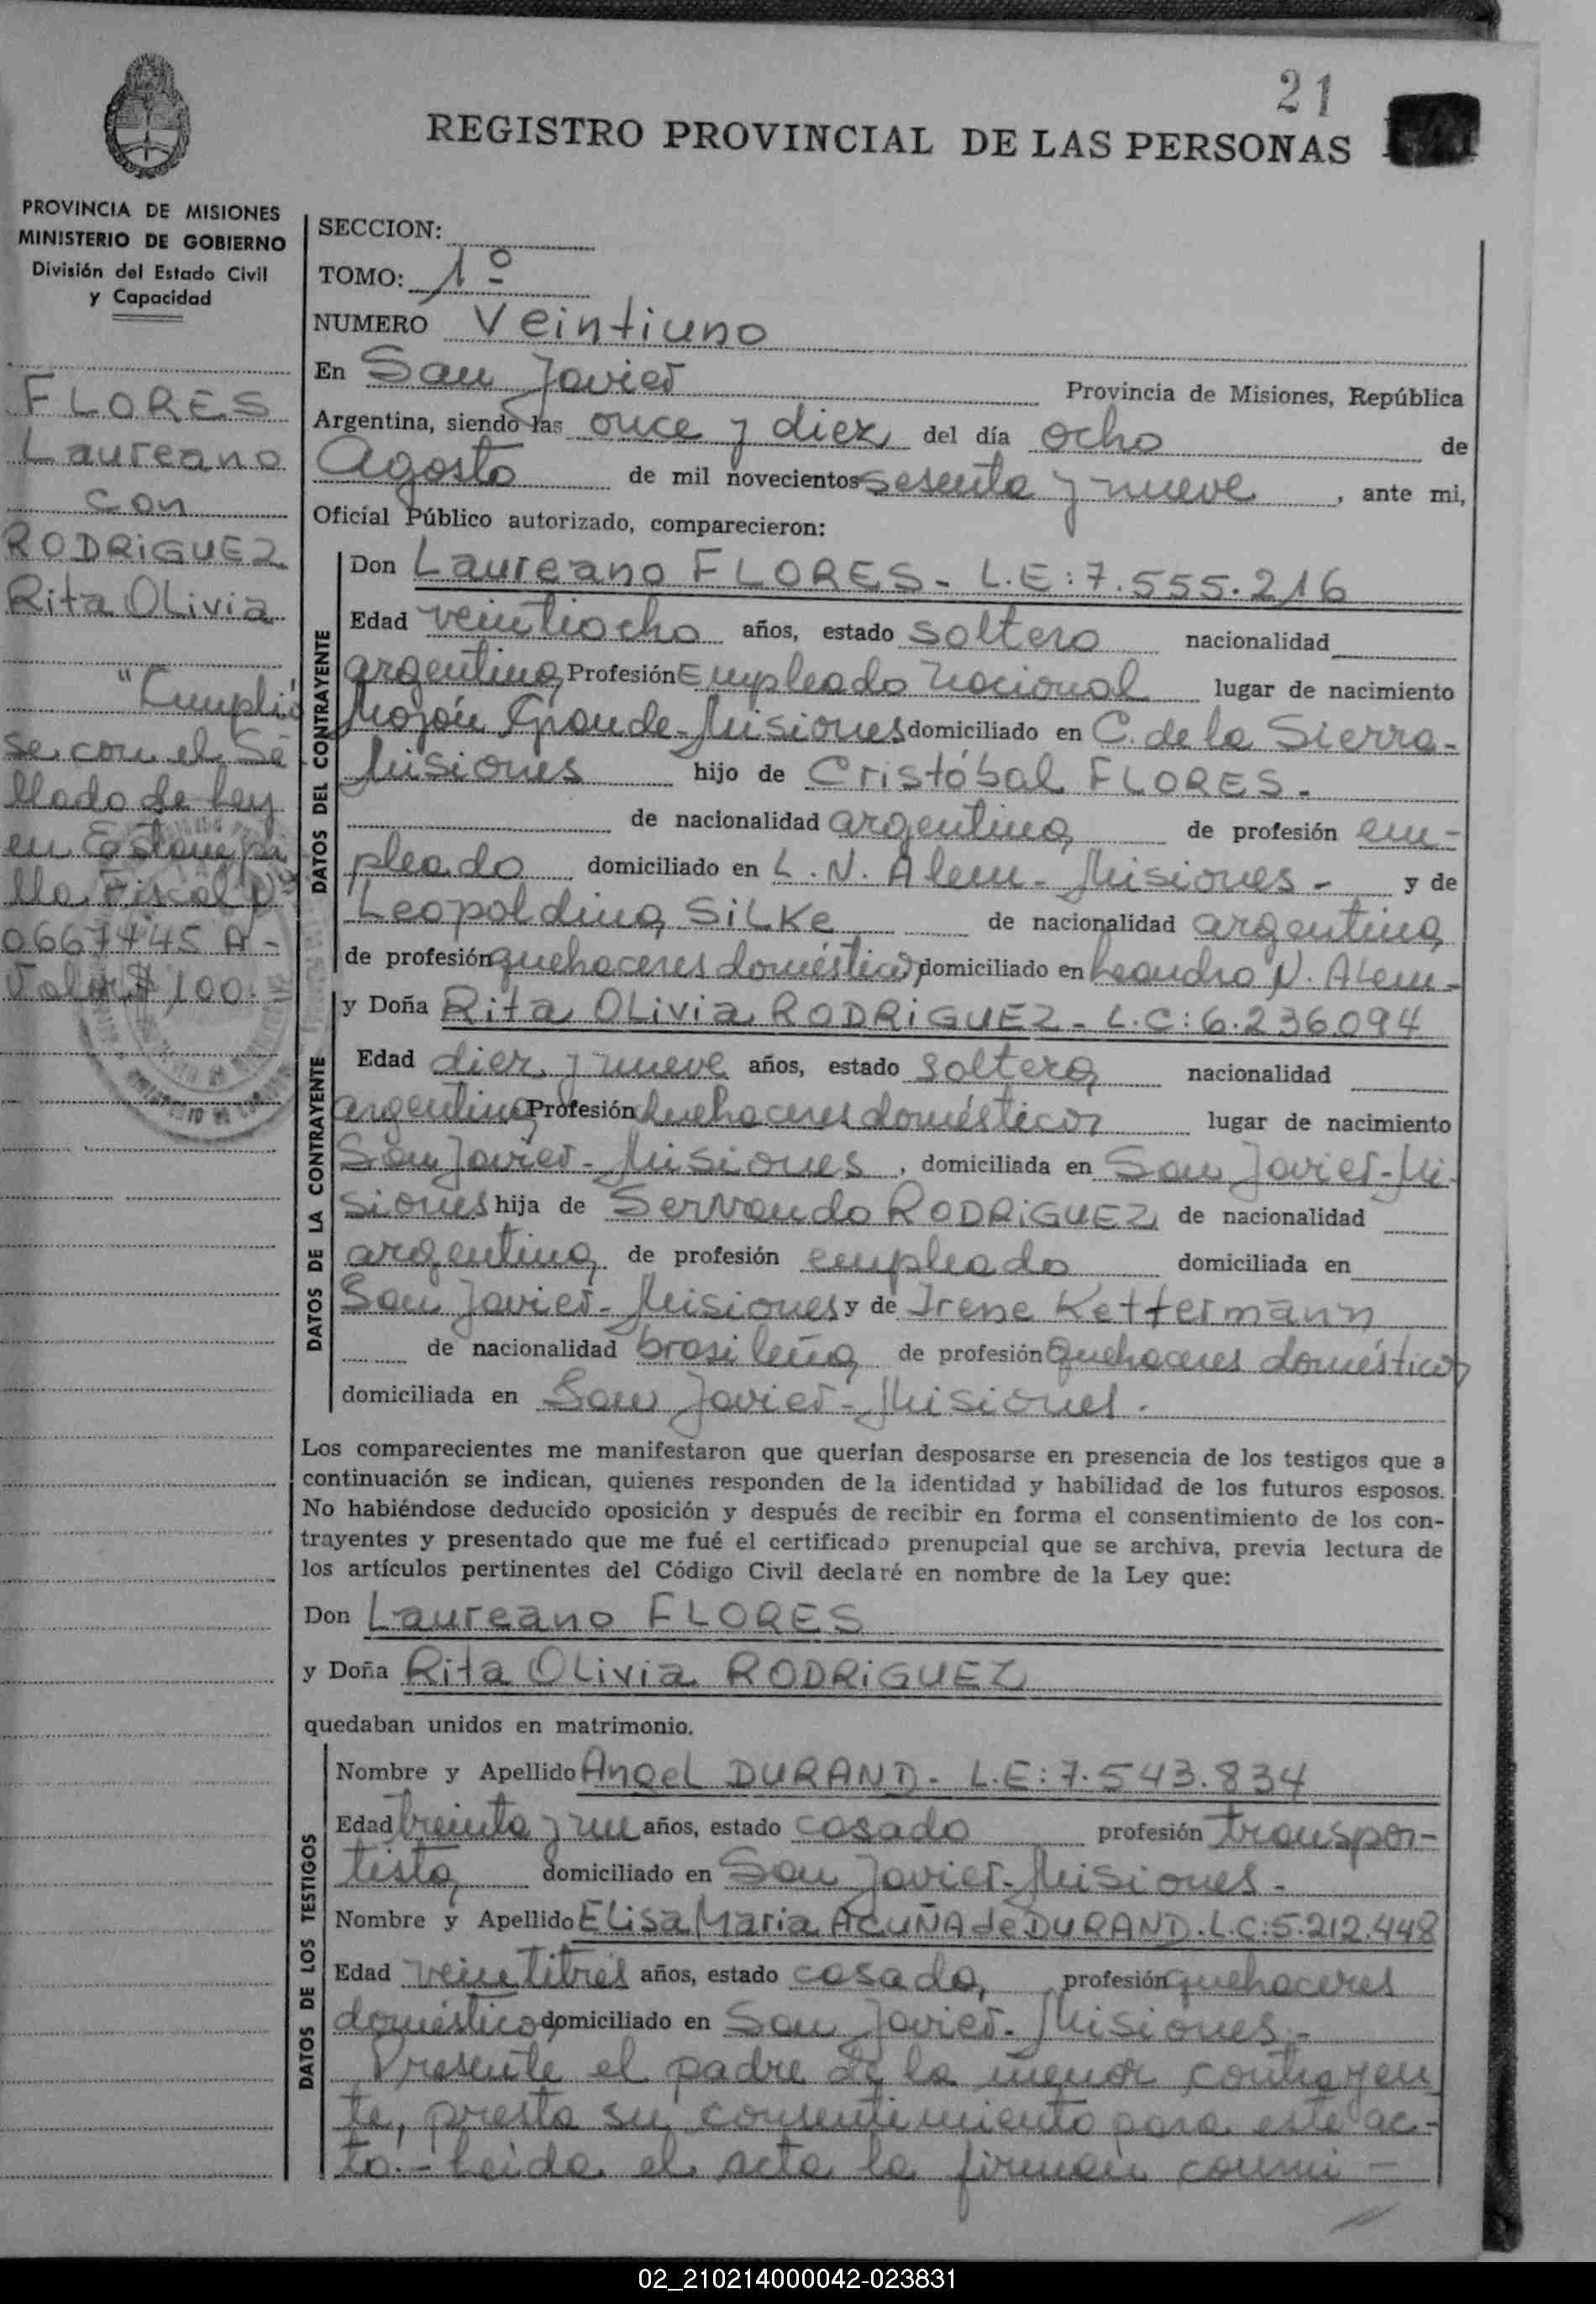 21
REGISTRO PROVINCIAL DE LAS PERSONAS
PROVINCIA DE MISIONES
MINISTERIO DE GOBIERNO
División del Estado Civil
y Capacidad
FLORES
Laureano
con
RODRIGUEZ
Rita OLivia
"Cumplió
se con el Se
llado de Ley
en Estampi
lla Fiscal Nº
0667445 A-
Valor $ 100.
SECCION:
TOMO: 1º
NUMERO Veintiuno
En San Javier Provincia de Misiones, República
Argentina, siendo las once y diez del día ocho de
Agosto de mil novecientos sesenta y nueve, ante mi,
Oficial Público autorizado, comparecieron:
DATOS DEL CONTRAYENTE
Don Laureano FLORES - L.E: 7.555.216
Edad veintiocho años, estado soltero nacionalidad
argentina Profesión Empleado Nacional lugar de nacimiento
Mojón Grande-Misiones domiciliado en C. de la Sierra-
Misiones hijo de Cristóbal FLORES.
de nacionalidad argentina de profesión em-
pleado domiciliado en L. N. Alem - Misiones - y de
Leopoldina SILKe de nacionalidad argentina
de profesión quehaceres domésticos domiciliado en Leandro N. Alem-
DATOS DE LA CONTRAYENTE
y Doña Rita OLivia RODRIGUEZ - L.C: 6.236.094
Edad diez y nueve años, estado soltera nacionalidad
argentina Profesión Quehaceres domésticos lugar de nacimiento
San Javier - Misiones, domiciliada en San Javier-Mi-
siones hija de Servando RODRIGUEZ de nacionalidad
argentina de profesión empleado domiciliada en
San Javier - Misiones y de Irene Kettermann
de nacionalidad brasileña de profesión Quehaceres domésticos
domiciliada en San Javier - Misiones.
Los comparecientes me manifestaron que querían desposarse en presencia de los testigos que a
continuación se indican, quienes responden de la identidad y habilidad de los futuros esposos.
No habiéndose deducido oposición y después de recibir en forma el consentimiento de los con-
trayentes y presentado que me fué el certificado prenupcial que se archiva, previa lectura de
los artículos pertinentes del Código Civil declaré en nombre de la Ley que:
Don Laureano FLORES
y Doña Rita OLivia RODRIGUEZ
quedaban unidos en matrimonio.
DATOS DE LOS TESTIGOS
Nombre y Apellido Angel DURAND - L.E: 7.543.834
Edad treinta y un años, estado casado profesión transpor-
tista domiciliado en San Javier - Misiones -
Nombre y Apellido ELisa Maria ACUÑA de DURAND. L.C: 5.212.448
Edad veintitres años, estado casada, profesión quehaceres
domésticos domiciliado en San Javier - Misiones -
Presente el padre de la menor contrayen
te, presta su consentimiento para este ac-
to.- Leida el acta la firman conmi-
02_210214000042-023831